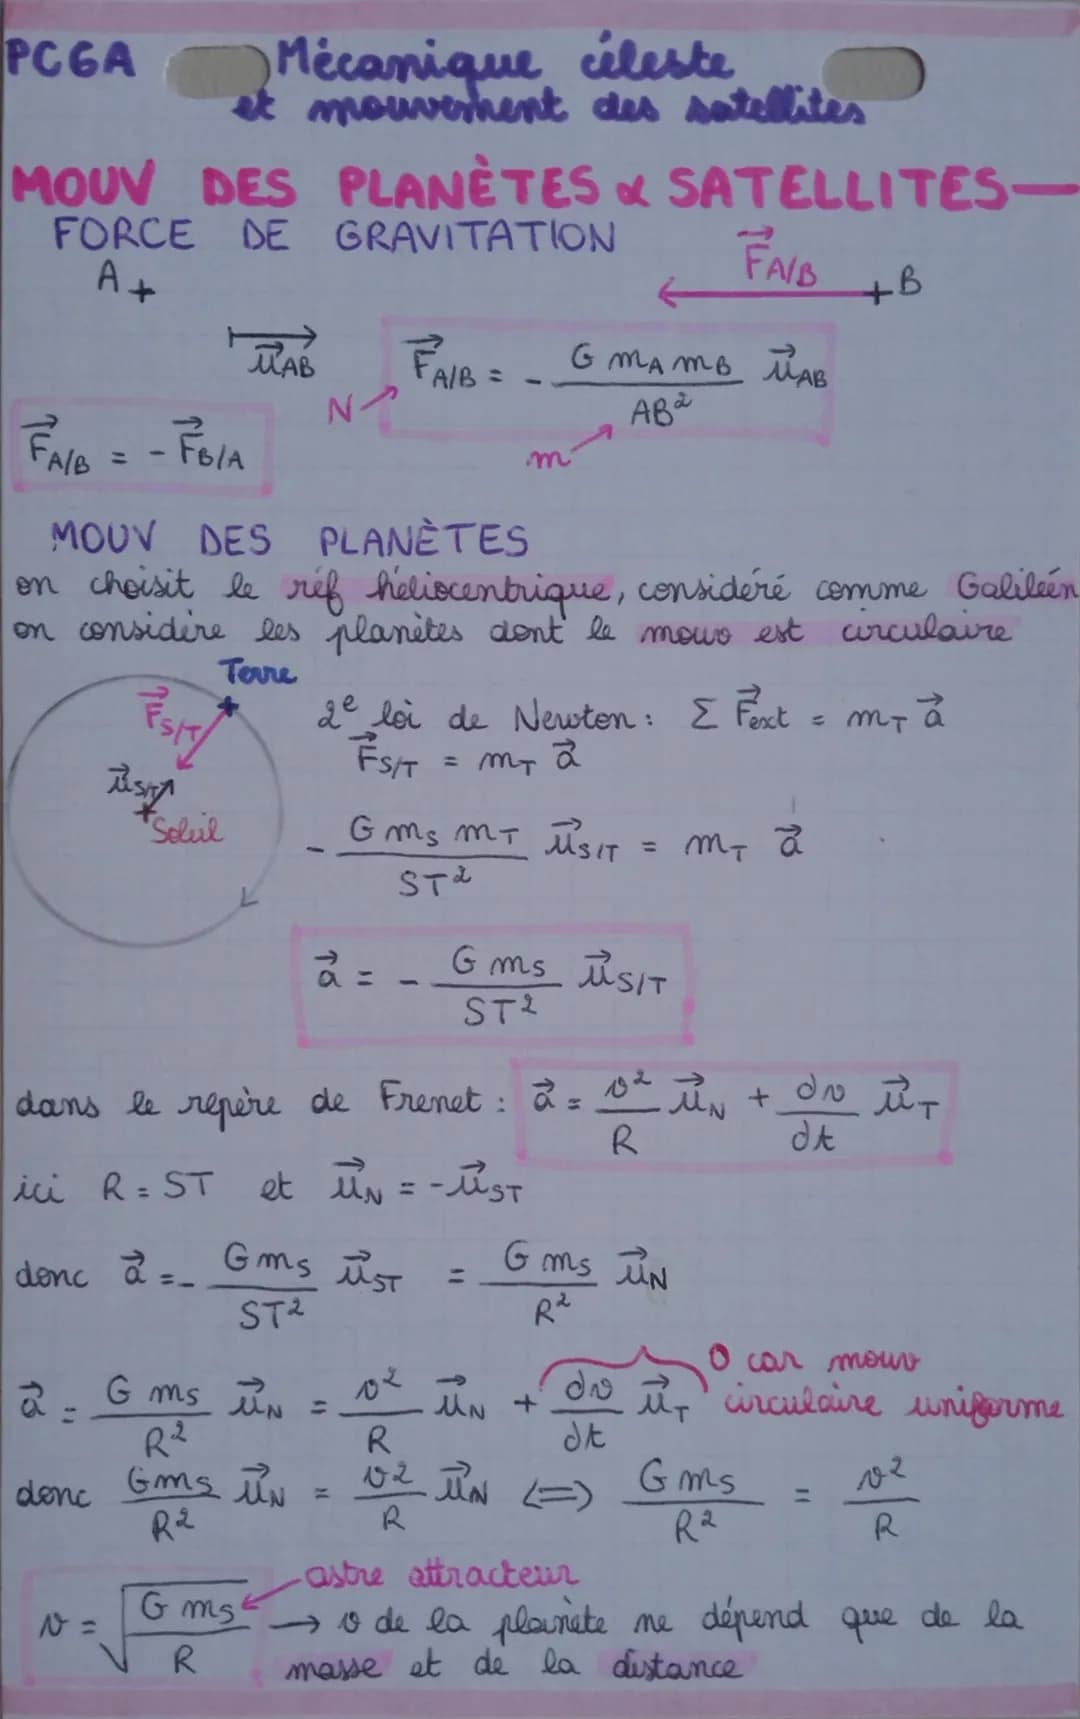 PCGA Mécanique céleste
et mouvement des satellites
MOUV DES PLANÈTES & SATELLITES
FORCE DE GRAVITATION
A +
F⃗A/B
+ B
u⃗AB
F⃗A/B = - G mA mB / AB² u⃗AB
N
m
F⃗A/B = - F⃗B/A
MOUV DES PLANÈTES
on choisit le réf héliocentrique, considéré comme Galiléen
on considère les planètes dont le mouv est circulaire
Terre
F⃗S/T
u⃗S/T
Soleil
2e loi de Newton : Σ F⃗ext = mT a⃗
F⃗S/T = mT a⃗
- G ms mT / ST² u⃗S/T = mT a⃗
a⃗ = - G ms / ST² u⃗S/T
dans le repère de Frenet : a⃗ = v² / R u⃗N + dv / dt u⃗T
ici R = ST et u⃗N = -u⃗ST
donc a⃗ = - G ms / ST² u⃗ST = G ms / R² u⃗N
0 car mouv
circulaire uniforme
a⃗ = G ms / R² u⃗N = v² / R u⃗N + dv / dt u⃗T
donc G ms / R² u⃗N = v² / R u⃗N <=> G ms / R² = v² / R
astre attracteur
v = √(G ms / R) → v de la planète ne dépend que de la
masse et de la distance